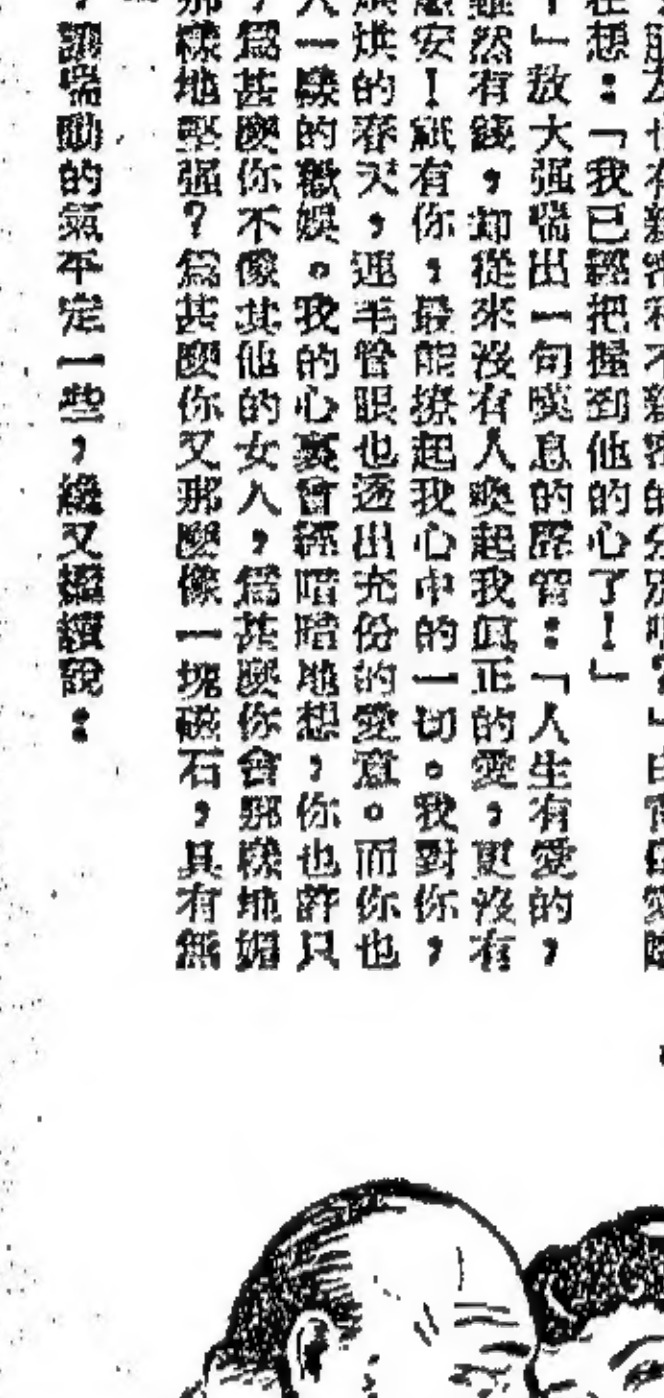 朋友也有新密和不新密的分別嗎？」白
在想：「我已經把握到他的心了！」
！」放大强喘出一句嘆息的聲音：「人生有愛的，
雖然有錢，却從來沒有人喚起我真正的愛，更沒有
安！祇有你，最能撩起我心中的一切。我對你，
烘的春天，連毛管眼也透出充份的愛意。而你也
人一樣的歡娛。我的心裏曾經暗暗地想，你也許只
，爲甚麽你不像其他的女人，爲甚麽你會那樣地媚
那樣地堅强？爲甚麽你又那麽像一塊磁石，具有無
，讓喘動的氣平定一些，纔又繼續說：